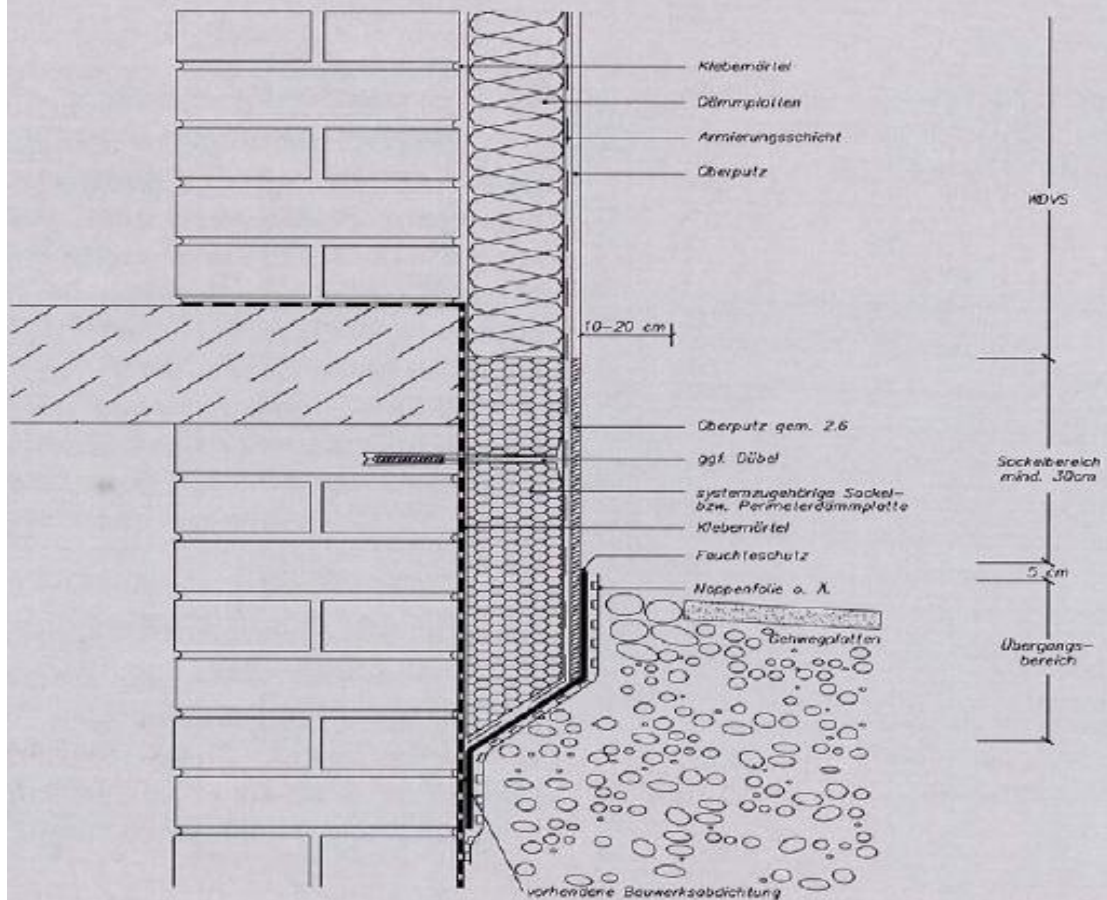 Klebemörtel
Dämmplatten
Armierungsschicht
Oberputz
WDVS
10-20 cm
Oberputz gem. 2.6
ggf. Dübel
systemzugehörige Sockel-
bzw. Perimeterdämmplatte
Klebemörtel
Feuchteschutz
Noppenfolie o. Ä.
Gehwegplatten
Sockelbereich
mind. 30cm
5 cm
Übergangs-
bereich
vorhandene Bauwerksabdichtung